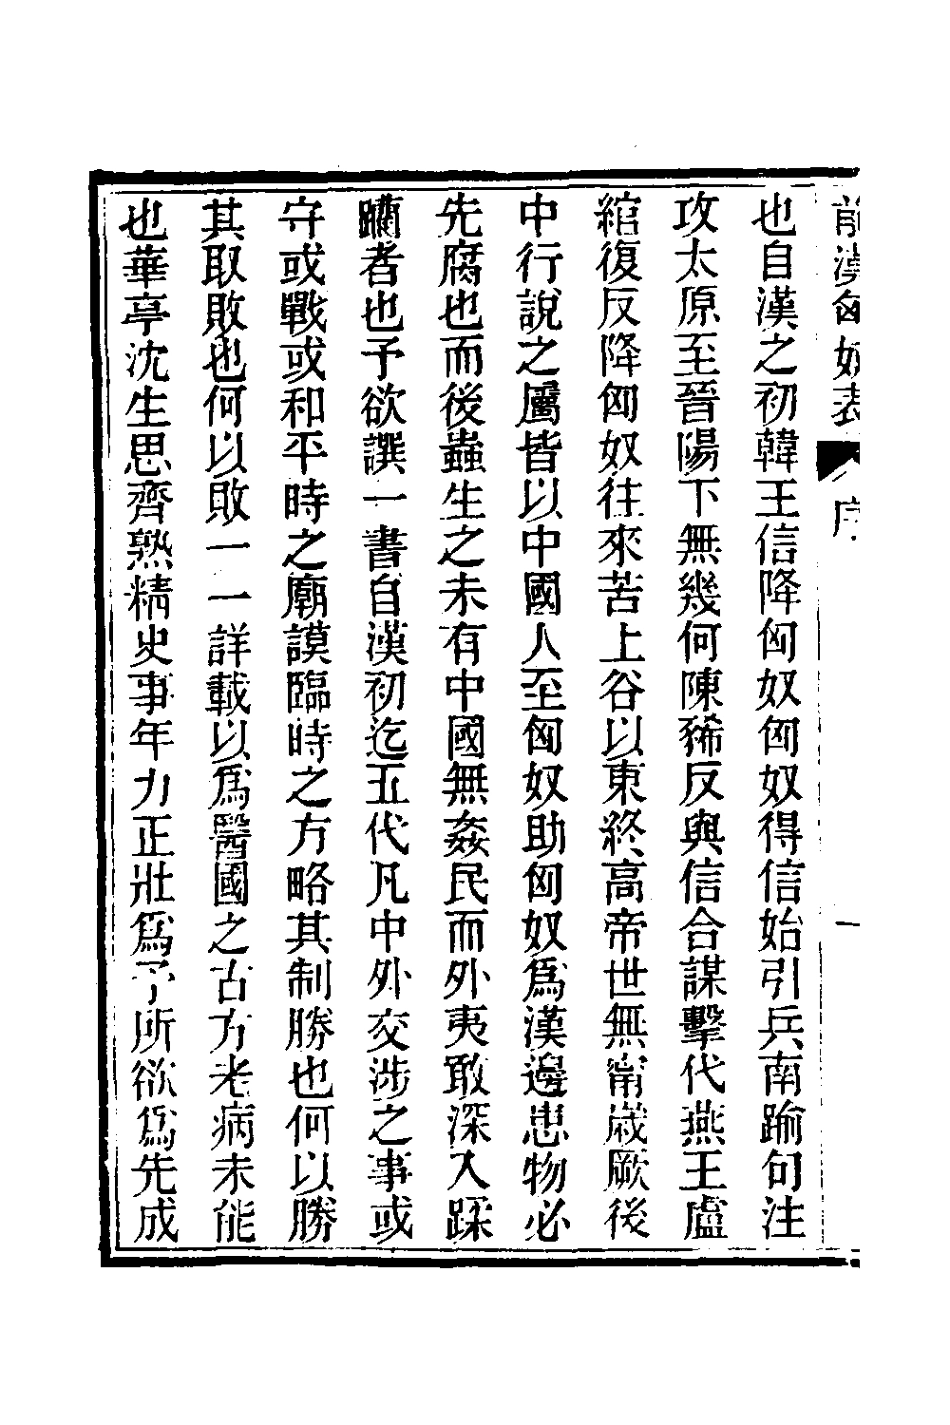 前漢匈奴表 序 一
也自漢之初韓王信降匈奴匈奴得信始引兵南踰句注
攻太原至晉陽下無幾何陳豨反與信合謀擊代燕王盧
綰復反降匈奴往來苦上谷以東終高帝世無甯歲厥後
中行說之屬皆以中國人至匈奴助匈奴爲漢邊患物必
先腐也而後蟲生之未有中國無姦民而外夷敢深入蹂
躪者也予欲譔一書自漢初迄五代凡中外交涉之事或
守或戰或和平時之廟謨臨時之方略其制勝也何以勝
其取敗也何以敗一一詳載以爲醫國之古方老病未能
也華亭沈生思齊熟精史事年力正壯爲予所欲爲先成